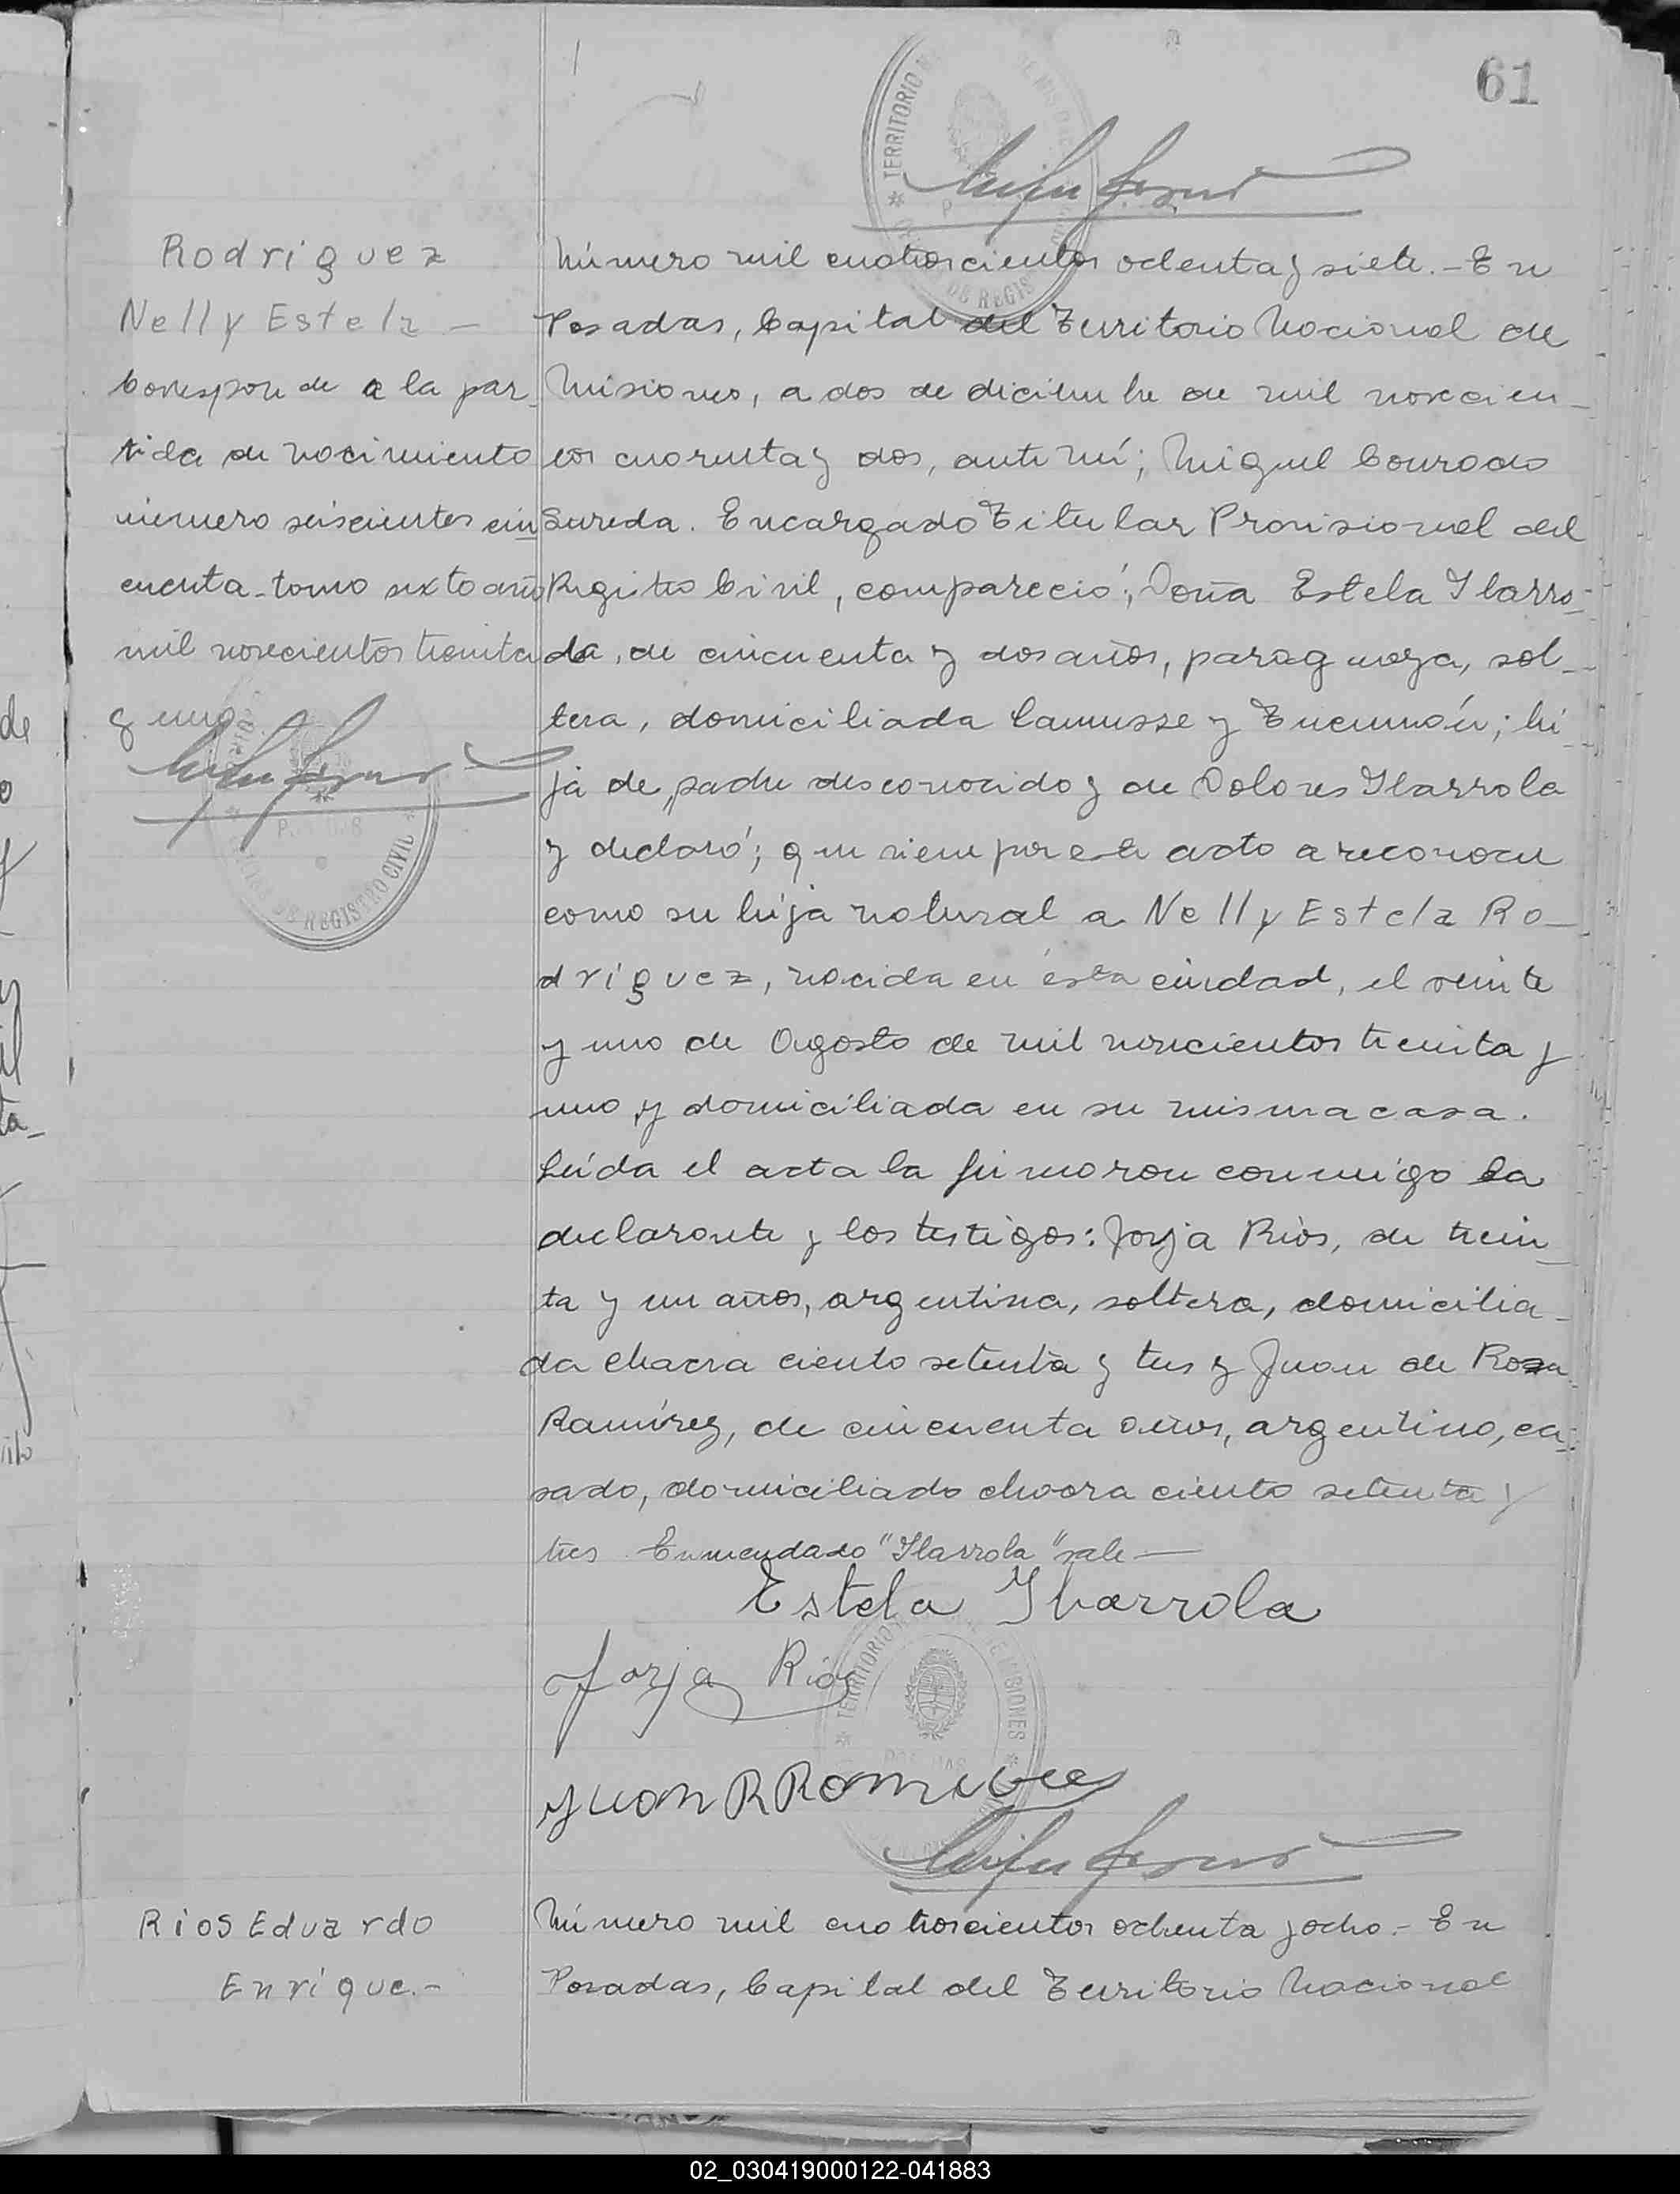 61
Rodriguez
Nelly Estela —
Corresponde a la par-
tida de nacimiento
número seiscientos cin
cuenta tomo sexto año
mil novecientos treinta
y uno
Número mil cuatrocientos ochenta y siete.- En
Posadas, Capital del Territorio Nacional de
Misiones, a dos de diciembre de mil novecien-
tos cuarenta y dos, ante mí; Miguel Conrado
Sureda. Encargado Titular Provisional del
Registro Civil, compareció; Doña Estela Ibarro-
la, de cincuenta y dos años, paraguaya, sol-
tera, domiciliada Lanusse y Tucumán; hi-
ja de padre desconocido y de Dolores Ibarrola
y declaró; que viene por este acto a reconocer
como su hija natural a Nelly Estela Ro-
driguez, nacida en ésta ciudad, el veinte
y uno de Agosto de mil novecientos treinta y
uno y domiciliada en su misma casa.
Leída el acta la firmaron conmigo la
declarante y los testigos: Jorja Ríos, de trein-
ta y un años, argentina, soltera, domicilia-
da chacra ciento setenta y tres y Juan de Rosa
Ramírez, de cincuenta años, argentino, ca-
sado, domiciliado chacra ciento setenta y
tres Enmendado "Ibarrola" vale —
Estela Ibarrola
Jorja Ríos
Juan R Ramirez
TERRITORIO
DE MISIONES
REGISTRO CIVIL
Rios Eduardo
Enrique.-
Número mil cuatrocientos ochenta y ocho.- En
Posadas, Capital del Territorio Nacional
02_030419000122-041883